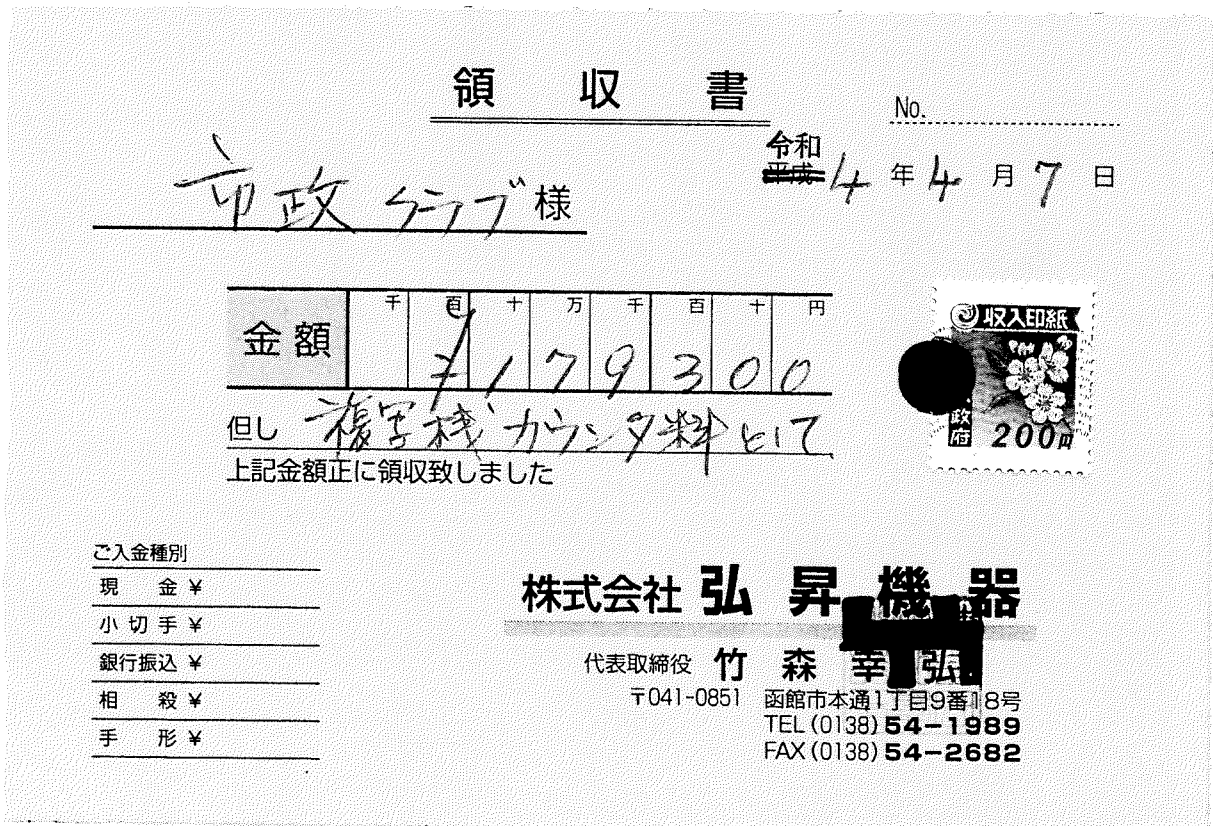 領収書
No.
令和
平成 4年4月7日
市政クラブ様
千百十万千百十円
金額 ¥179300
但し 複写機カウンタ料として
上記金額正に領収致しました
収入印紙
政府
200円
ご入金種別
現金¥
小切手¥
銀行振込¥
相殺¥
手形¥
株式会社 弘昇機器
代表取締役 竹森幸弘
〒041-0851 函館市本通1丁目9番18号
TEL(0138)54-1989
FAX(0138)54-2682